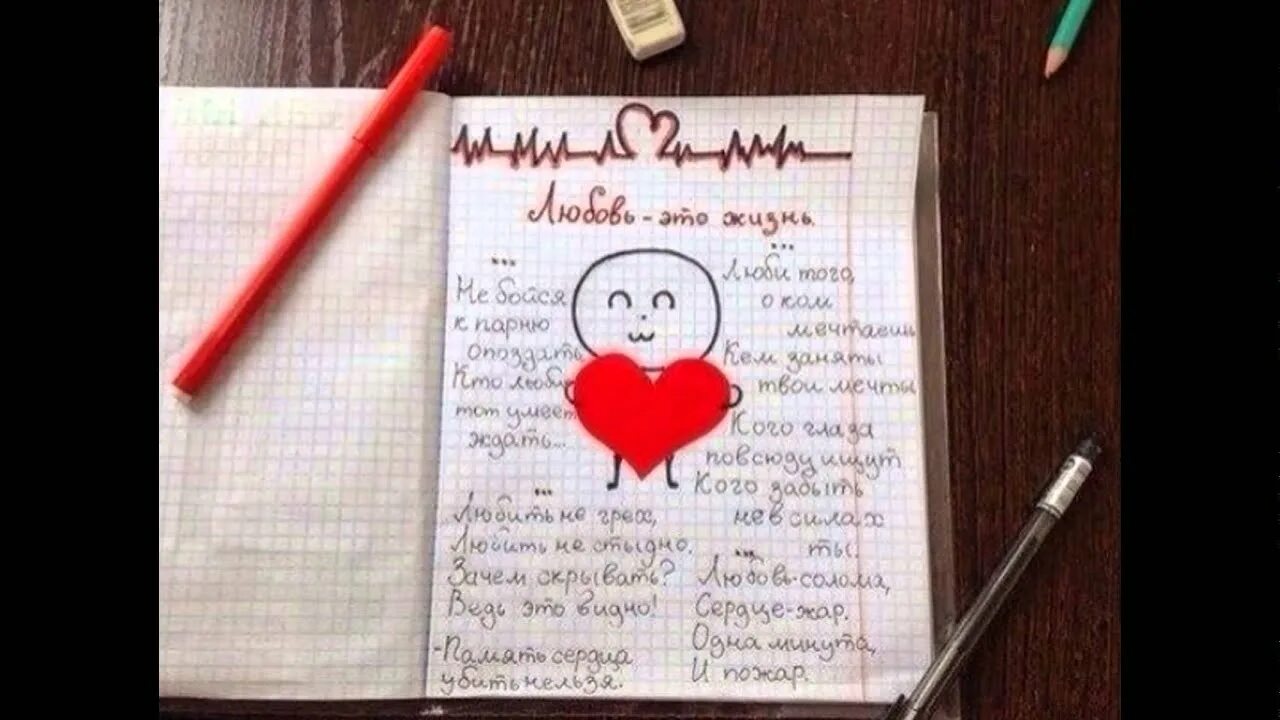 Любовь - это жизнь.
...
Не бойся
к парню
опоздать
Кто любит
тот умеет
ждать...
...
Люби того,
о ком
мечтаешь
Кем заняты
твои мечты
Кого глаза
повсюду ищут
Кого забыть
не в силах
ты.
...
Любить не грех,
Любить не стыдно.
Зачем скрывать?
Ведь это видно!
-Память сердца
убить нельзя.
...
Любовь-солома,
Сердце-жар.
Одна минута,
И пожар.